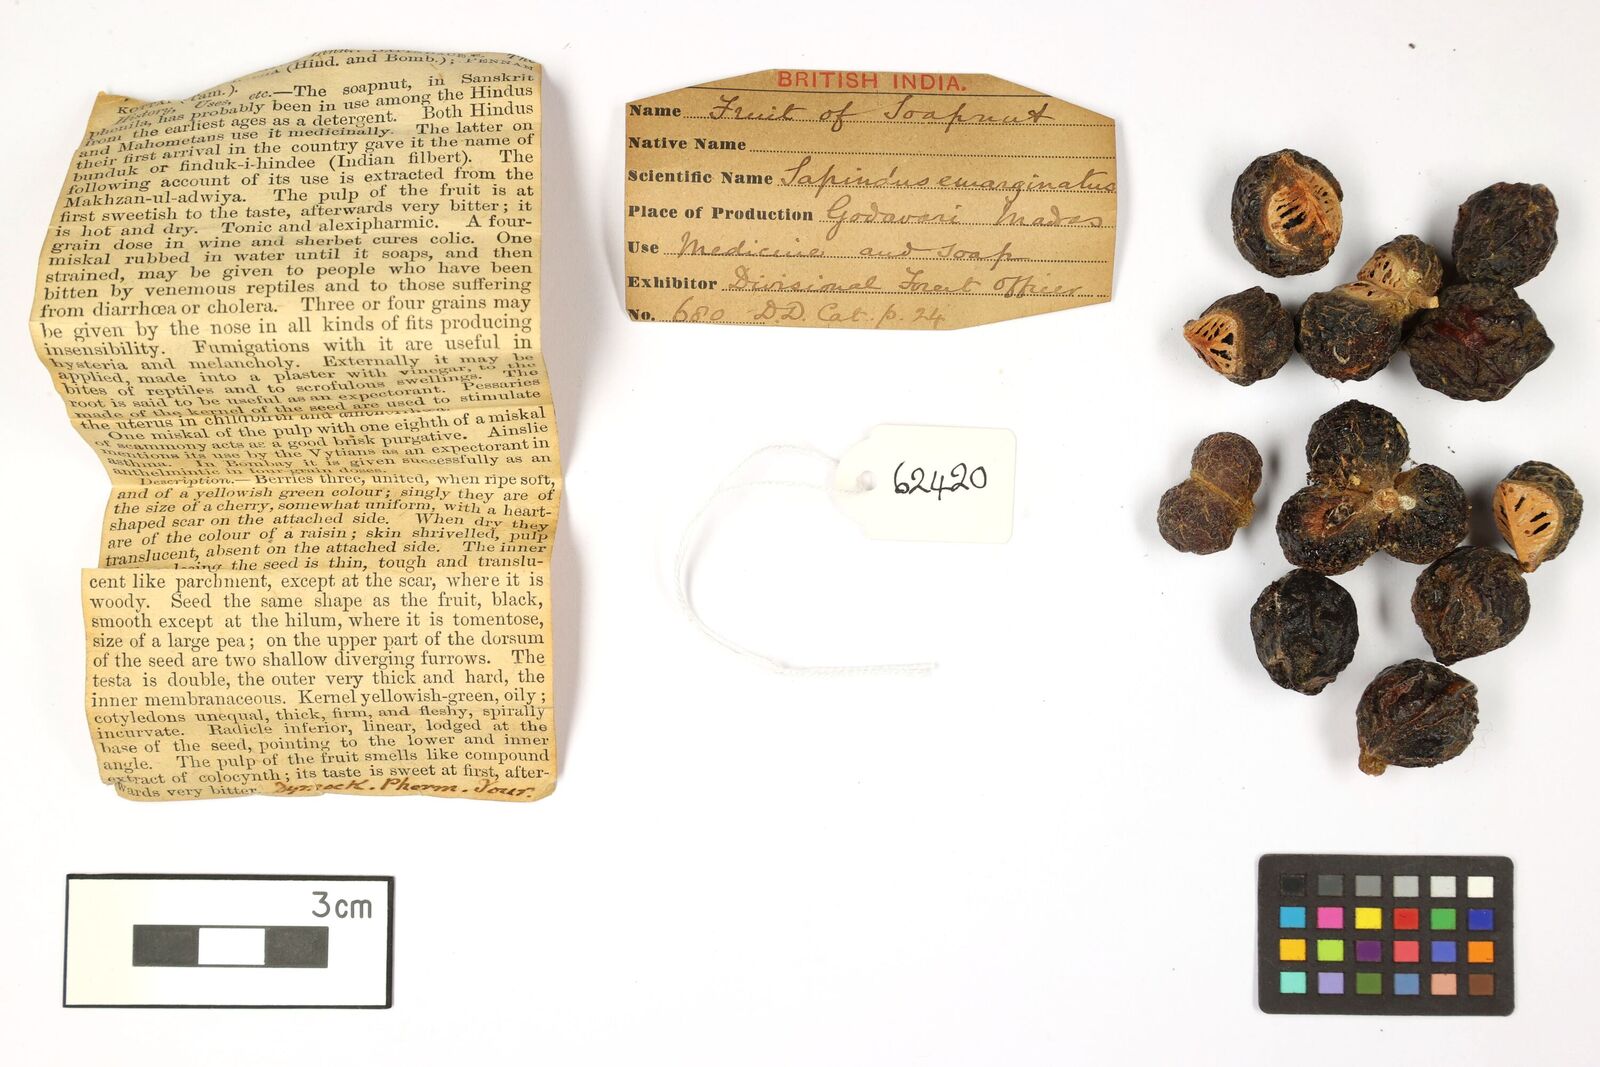 (Hind. and Bomb.);
(Tam.).
History, Uses, etc.—The soapnut, in Sanskrit
phenila, has probably been in use among the Hindus
from the earliest ages as a detergent. Both Hindus
and Mahometans use it medicinally. The latter on
their first arrival in the country gave it the name of
bunduk or finduk-i-hindee (Indian filbert). The
following account of its use is extracted from the
Makhzan-ul-adwiya. The pulp of the fruit is at
first sweetish to the taste, afterwards very bitter; it
is hot and dry. Tonic and alexipharmic. A four-
grain dose in wine and sherbet cures colic. One
miskal rubbed in water until it soaps, and then
strained, may be given to people who have been
bitten by venemous reptiles and to those suffering
from diarrhœa or cholera. Three or four grains may
be given by the nose in all kinds of fits producing
insensibility. Fumigations with it are useful in
hysteria and melancholy. Externally it may be
applied, made into a plaster with vinegar, to the
bites of reptiles and to scrofulous swellings. The
root is said to be useful as an expectorant. Pessaries
made of the kernel of the seed are used to stimulate
the uterus in childbirth and amenorrhœa.
One miskal of the pulp with one eighth of a miskal
of scammony acts as a good brisk purgative. Ainslie
mentions its use by the Vytians as an expectorant in
asthma. In Bombay it is given successfully as an
anthelmintic in four grain doses.
Description.—Berries three, united, when ripe soft,
and of a yellowish green colour; singly they are of
the size of a cherry, somewhat uniform, with a heart-
shaped scar on the attached side. When dry they
are of the colour of a raisin; skin shrivelled, pulp
translucent, absent on the attached side. The inner
the seed is thin, tough and translu-
cent like parchment, except at the scar, where it is
woody. Seed the same shape as the fruit, black,
smooth except at the hilum, where it is tomentose,
size of a large pea; on the upper part of the dorsum
of the seed are two shallow diverging furrows. The
testa is double, the outer very thick and hard, the
inner membranaceous. Kernel yellowish-green, oily;
cotyledons unequal, thick, firm, and fleshy, spirally
incurvate. Radicle inferior, linear, lodged at the
base of the seed, pointing to the lower and inner
angle. The pulp of the fruit smells like compound
extract of colocynth; its taste is sweet at first, after-
wards very bitter. Dymock. Pharm. Jour.
BRITISH INDIA.
Name Fruit of Soapnut
Native Name
Scientific Name Sapindus emarginatus
Place of Production Godavari Madras
Use Medicine and soap
Exhibitor Divisional Forest Officer
No. 680 D.D. Cat. p. 24
62420
3cm